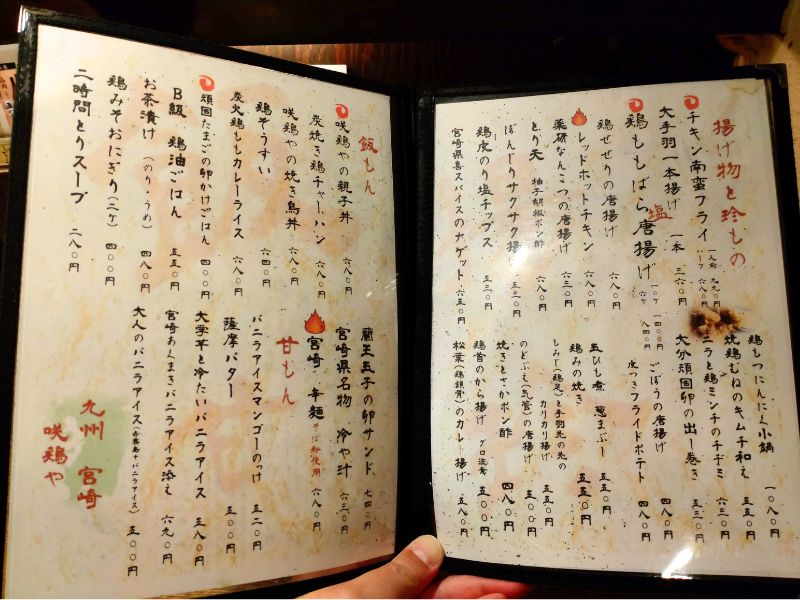 揚げ物と珍もの
チキン南蛮フライ 一人前 九九〇円 ハーフ 六八〇円
大手羽一本揚げ 一本 三六〇円
鶏ももばら唐揚げ 塩 十ケ 一四〇〇円 六ケ 八四〇円
鶏せせりの唐揚げ 六八〇円
レッドホットチキン 六八〇円
薬研なんこつの唐揚げ 六三〇円
とり天 柚子胡椒ポン酢 六八〇円
ぼんじりサクサク揚 五三〇円
鶏皮のり塩チップス 五三〇円
宮崎県喜スパイスのナゲット 六五〇円
鶏もつにんにく小鍋 一〇八〇円
焼鶏むねのキムチ和え 五五〇円
ニラと鶏ミンチのチヂミ 六三〇円
大分頑固卵の出し巻き 五三〇円
ごぼうの唐揚げ 四八〇円
皮つきフライドポテト 四八〇円
玉ひも煮 葱まぶし 五五〇円
鶏みの焼き 五五〇円
もみじ(鶏足)と手羽先の先のカリカリ揚げ 五五〇円
のどぶえ(気管)の唐揚げ 五〇〇円
焼きとさかポン酢 四八〇円
鶏首のから揚げ グロ注意 五〇〇円
松葉(鶏鎖骨)のカレー揚げ 五八〇円
飯もん
咲鶏やの親子丼 六八〇円
炭焼き鶏チャーハン 六八〇円
咲鶏やの焼き鳥丼
鶏ぞうすい 六四〇円
炭火鶏ももカレーライス 六八〇円
頑固たまごの卵かけごはん 四〇〇円
B級 鶏油ごはん 五五〇円
お茶漬け (のり・うめ) 四八〇円
鶏みそおにぎり(二ケ) 四〇〇円
二時間とりスープ 二八〇円
蘭王玉子の卵サンド 七四〇円
宮崎県名物 冷や汁 六三〇円
宮崎 辛麺 そば粉使用 六八〇円
甘もん
バニラアイスマンゴーのっけ 五二〇円
薩摩バター 五〇〇円
大学芋と冷たいバニラアイス 五八〇円
宮崎あくまきバニラアイス添え 六九〇円
大人のバニラアイス(赤霧島+バニラアイス) 五〇〇円
九州 宮崎
咲鶏や